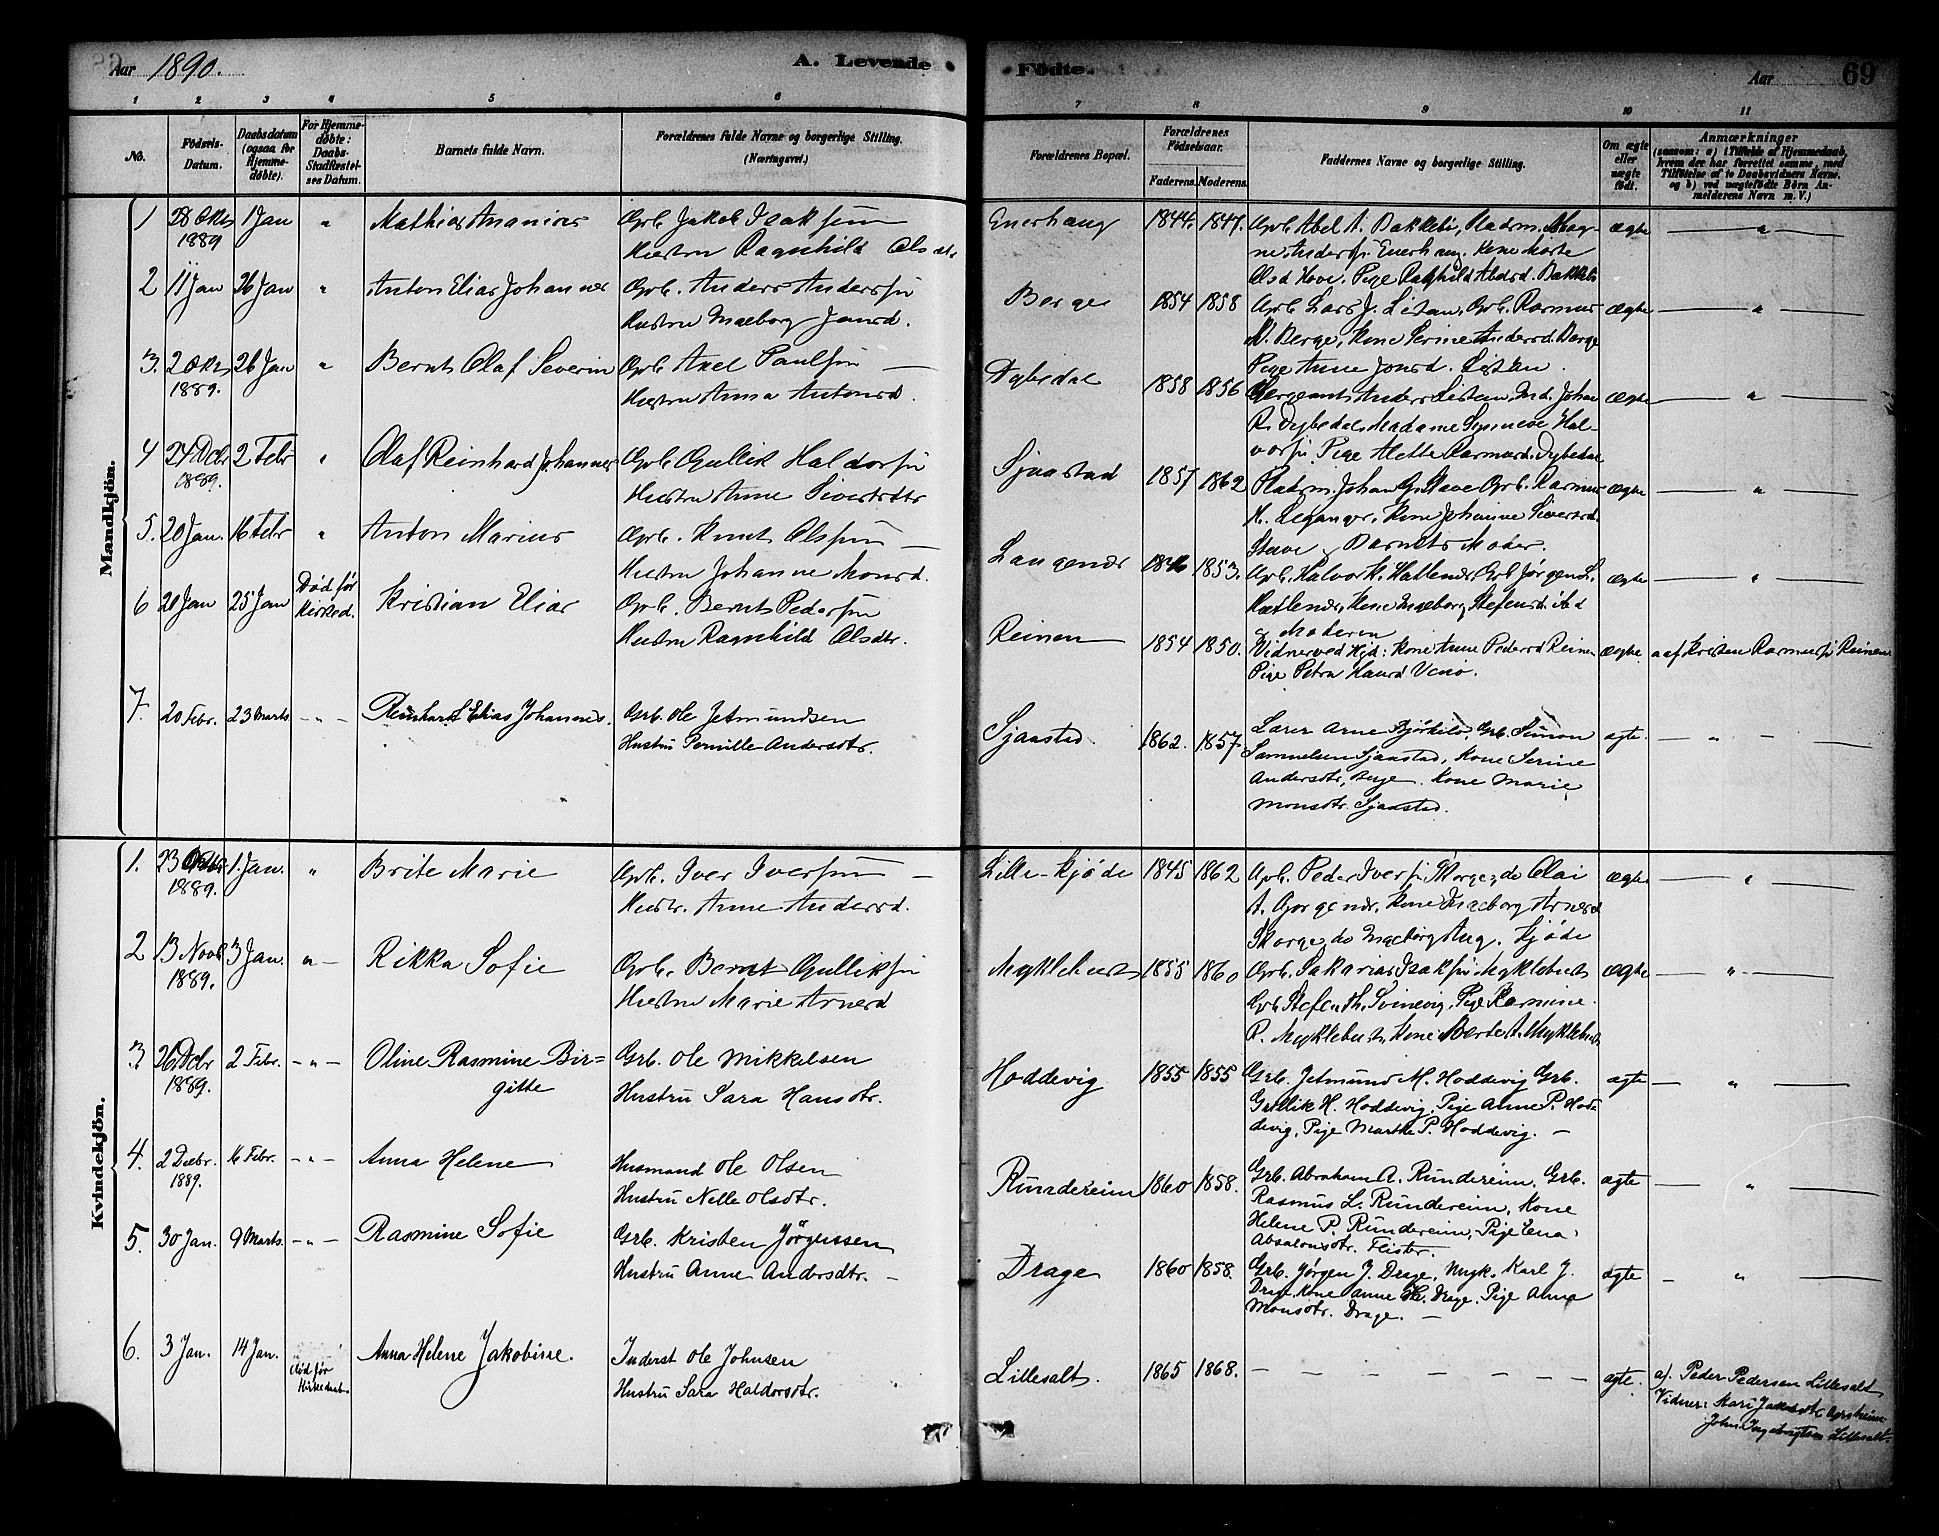 Aar 1890.
A. Levende
Födte.
Aar
69
1 2 3 4 5 6 7 8 9 10 11
No.
Födsels-Datum.
Daabsdatum (ogsaa for Hjemme-døbte).
For Hjemme-døbte: Daabs-Stadfæstel-ses Datum.
Barnets fulde Navn.
Forældrenes fulde Navne og borgerlige Stilling. (Næringsvei.)
Forældrenes Bopæl.
Forældrenes Födselsaar.
Faderens. Moderens.
Faddernes Navne og borgerlige Stilling.
Om ægte eller uægte født.
Anmærkninger
(saasom: a) i Tilfælde af Hjemmedaab, hvem der har forrettet samme, med Tilføielse af to Daabsvidners Navne. og b) ved uægtefødte Börn An-melderens Navn m. V.)
Mandkjön.
1 28 Oktr 1889 1 Jan " Mathias Ananias Grb. Jakob Isaksen
Hustru Ragnhild Olsdtr
Enerhaug 1844. 1847. Grb. Abel A. Bakkebø, Mag-
ne Anders. Enerhaug. Kone Marte
Olsd Hove. Pige Ragnhild Abelsd. Bakkebø ægte "
2 11 Jan 26 Jan " Anton Elias Johannes Grb. Anders Anders
Hustru Ingeborg Jonsd.
Berge 1854 1858 Grb. Lars J. Listau, Grb. Rasmus
M. Berge, Kone Serine Andersd. Berge
Pige Anne Jonsd. Listau. ægte "
3. 2 Oktr 1889. 26 Jan " Bernt Olaf Severin Grb. Axel Paulsen
Hustru Anna Antonsd.
Dybedal 1858 1856 Sergeant Anders Listau, Johan
R. Dybedal, Madame Hal-
vors. Pige Alette Rasmusd. Dybedal ægte "
4 24 Decbr 1889. 2 Febr " Olaf Reinhard Johannes Grb. Gullik Haldors
Hustru Anne Sivertsdtr
Sjaastad 1857 1862 Johan G. Stave Grb. Rasmus
K. Leganger, Kone Johanne Siversd.
Stave, Barnets Moder. ægte "
5. 20 Jan. 16 Febr " Anton Marius Grb. Knut Olsen
Hustru Johanne Monsd.
Langenes 1846 1853. Grb. Halvor K. Hatlenes, Grb Jørgen L.
Hatlenes, Kone Ingeborg Stefensd. ibd
& Moderen ægte "
6 20 Jan 25 Jan Død før Kirked. Kristian Elias Grb. Bernt Peders
Hustru Ragnhild Olsdtr.
Reinen 1854 1850. Vidner ved Hjd: Kone Anne Pedersd Reinen
Pige Petra Hansd Venø. ægte. a af Kristen Rasmus Reinen
7. 20 Febr. 23 Marts - " - Reinhard Elias Johannes. Grb. Ole Jetmundsen
Hustru Pernille Andersdtr.
Sjaastad. 1862. 1857 Lærer Arne Bjørkelo, Grb. Simon
Samuelsen Sjaastad, Kone Serine
Andersdtr, Berge. Kone Marie
Monsdtr. Sjaastad. ægte. "
Kvindekjön.
1. 23 1889. 1. Jan. " Brite Marie Grb. Iver Iversen
Hustr. Anne Andersd.
Lille-Kjøde 1845 1862 Grb. Peder Ivers Skorge, do Olai
A. Gorgenes, Kone Ingeborg Arnesd
Skorge, do Ingeborg Aug. Kjøde ægte "
2 13 Novb 1889. 3 Jan. " - Rikka Sofie Grb. Bernt Gulliks
Hustru Marie Arnesd
Myklebust 1855 1860 Grb. Sakarias Isaks Myklebust
Grb Stefen Th. Svinevig, Pige Rasmine
R. Myklebust, Kone Berte A. Myklebust ægte "
3 26 Decbr 1889. 2 Febr. - " - Oline Rasmine Bir=
gitte Grb. Ole Mikkelsen
Hustru Sara Hansdtr.
Hoddevig 1855 1855 Grb. Jetmund M. Hoddevig Grb.
Gullik H. Hoddevig, Pige Anne P. Hod-
devig, Pige Marthe P. Hoddevig. ægte "
4. 2 Decbr. 1889. 16 Febr. - " - Anna Helene Husmand Ole Olsen
Hustru Nelle Olsdtr.
Rundereim 1860 1858. Grb. Abraham A. Rundereim, Grb.
Rasmus L. Rundereim, Kone
Helene P. Rundereim, Pige Lena
Absalonsdtr. Flister. ægte "
5. 30 Jan. 9 Marts. - " - Rasmine Sofie Grb. Kristen Jørgensen
Hustru Anne Andersdtr.
Drage 1860 1858. Grb. Jørgen J. Drage, Ungk. Karl J.
Drage, Kone Anne H. Drage, Pige Anna
Monsdtr. Drage. ægte "
6. 3 Jan. 14 Jan. død før Kirkedaab Anna Helene Jakobine. Inderst Ole Johnsen
Hustru Sara Haldorsdtr.
Lillesalt. 1865 1868. ægte. a). Peder Pedersen Lillesalt
Vidner: Kari Jakobsdtr
John Ingebrigtsen Lillesalt.